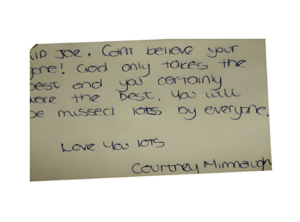 RIP JOE. Can't believe your
gone! God only takes the
best and you certainly
were the best. You will
be missed lots by everyone.
Love you lots
Courtney Mimnaugh